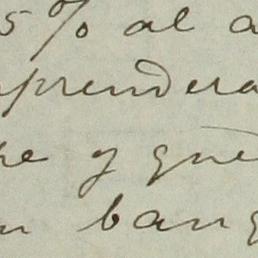 5% al a
prendera
re y que
n banq